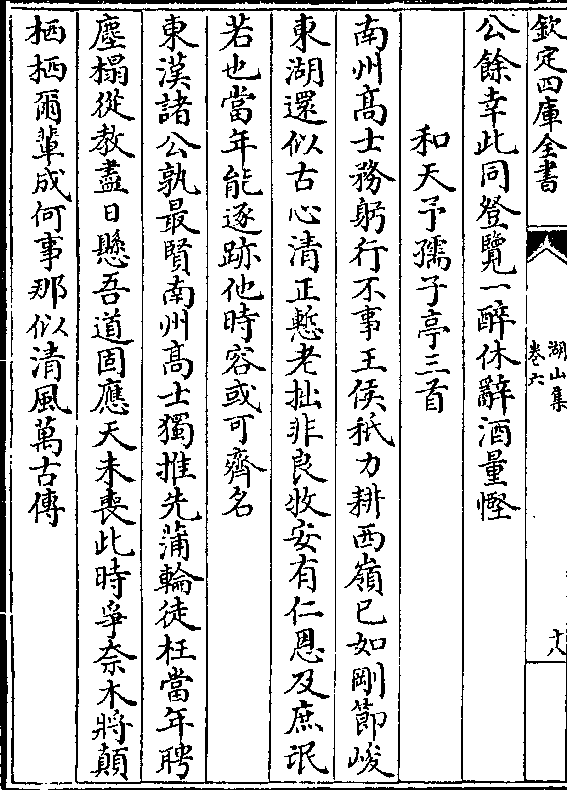 欽定四庫全書
湖山集
卷六
十八
公餘幸此同登覽一醉休辭酒量慳
和天予孺子亭三首
南州髙士務躬行不事王侯秖力耕西嶺已如剛節峻
東湖還似古心清正慙老拙非良牧安有仁恩及庶氓
若也當年能逐跡他時容或可齊名
東漢諸公孰最賢南州髙士獨推先蒲輪徒枉當年聘
塵榻從教盡日懸吾道固應天未喪此時爭奈木將顛
栖栖爾輩成何事那似清風萬古傳